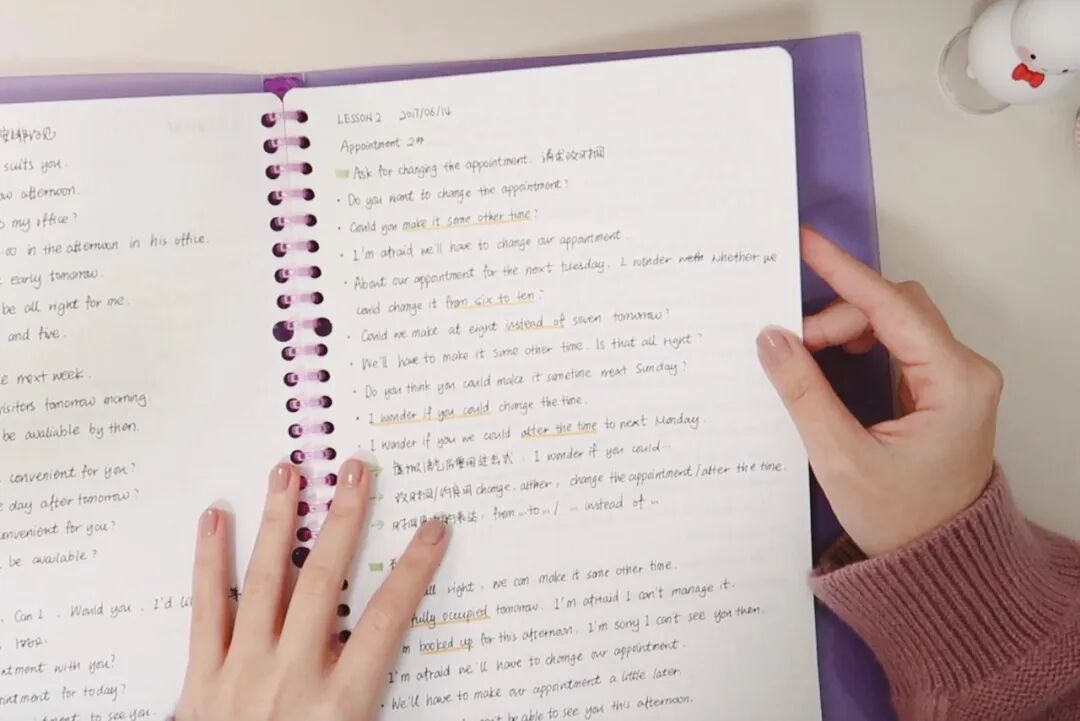 suits you.
afternoon.
my office?
00 in the afternoon in his office.
early tomorrow.
be all right for me.
and five.
next week.
visitors tomorrow morning.
be avaliable by then.
convenient for you?
day after tomorrow?
convenient for you?
be available?
Can I 、 Would you 、 I'd
with you?
for today?
to see you.
LESSON 2 2017/06/14
Appointment 2#
Ask for changing the appointment. 请求改时间
· Do you want to change the appointment?
· Could you make it some other time?
· I'm afraid we'll have to change our appointment.
· About our appointment for the next tuesday. I wonder whether we
could change it from six to ten?
· Could we make at eight instead of seven tomorrow?
· We'll have to make it some other time. Is that all right?
· Do you think you could make it sometime next Sunday?
· I wonder if you could change the time.
· I wonder if you we could alter the time to next Monday.
→ 虚拟语气后要用过去式 : I wonder if you could...
→ 改时间/约会用 change. alther , change the appointment/alter the time.
→ 时间 的表达 : from...to.../ ... instead of ...
right , we can make it some other time.
fully occupied tomorrow. I'm afraid I can't manage it.
booked up for this afternoon. I'm sorry I can't see you then.
I'm afraid we'll have to change our appointment.
· We'll have to make our appointment a little later.
be able to see you this afternoon.